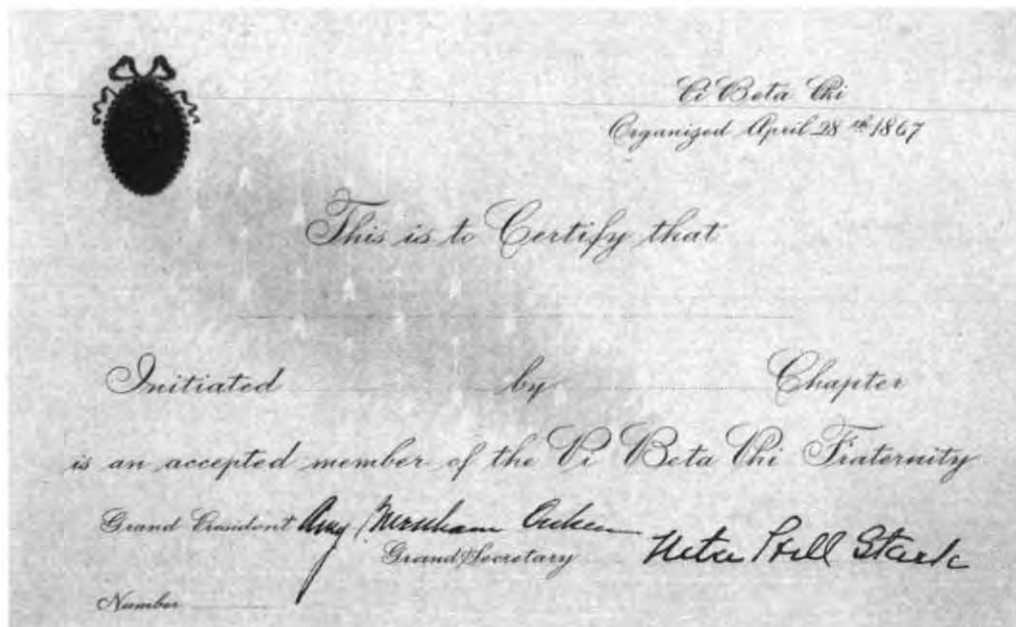 Pi Beta Phi
Organized April 28th 1867
This is to Certify that
Initiated by Chapter
is an accepted member of the Pi Beta Phi Fraternity
Grand President Amy Burnham Onken
Grand Secretary Nita Hill Stark
Number